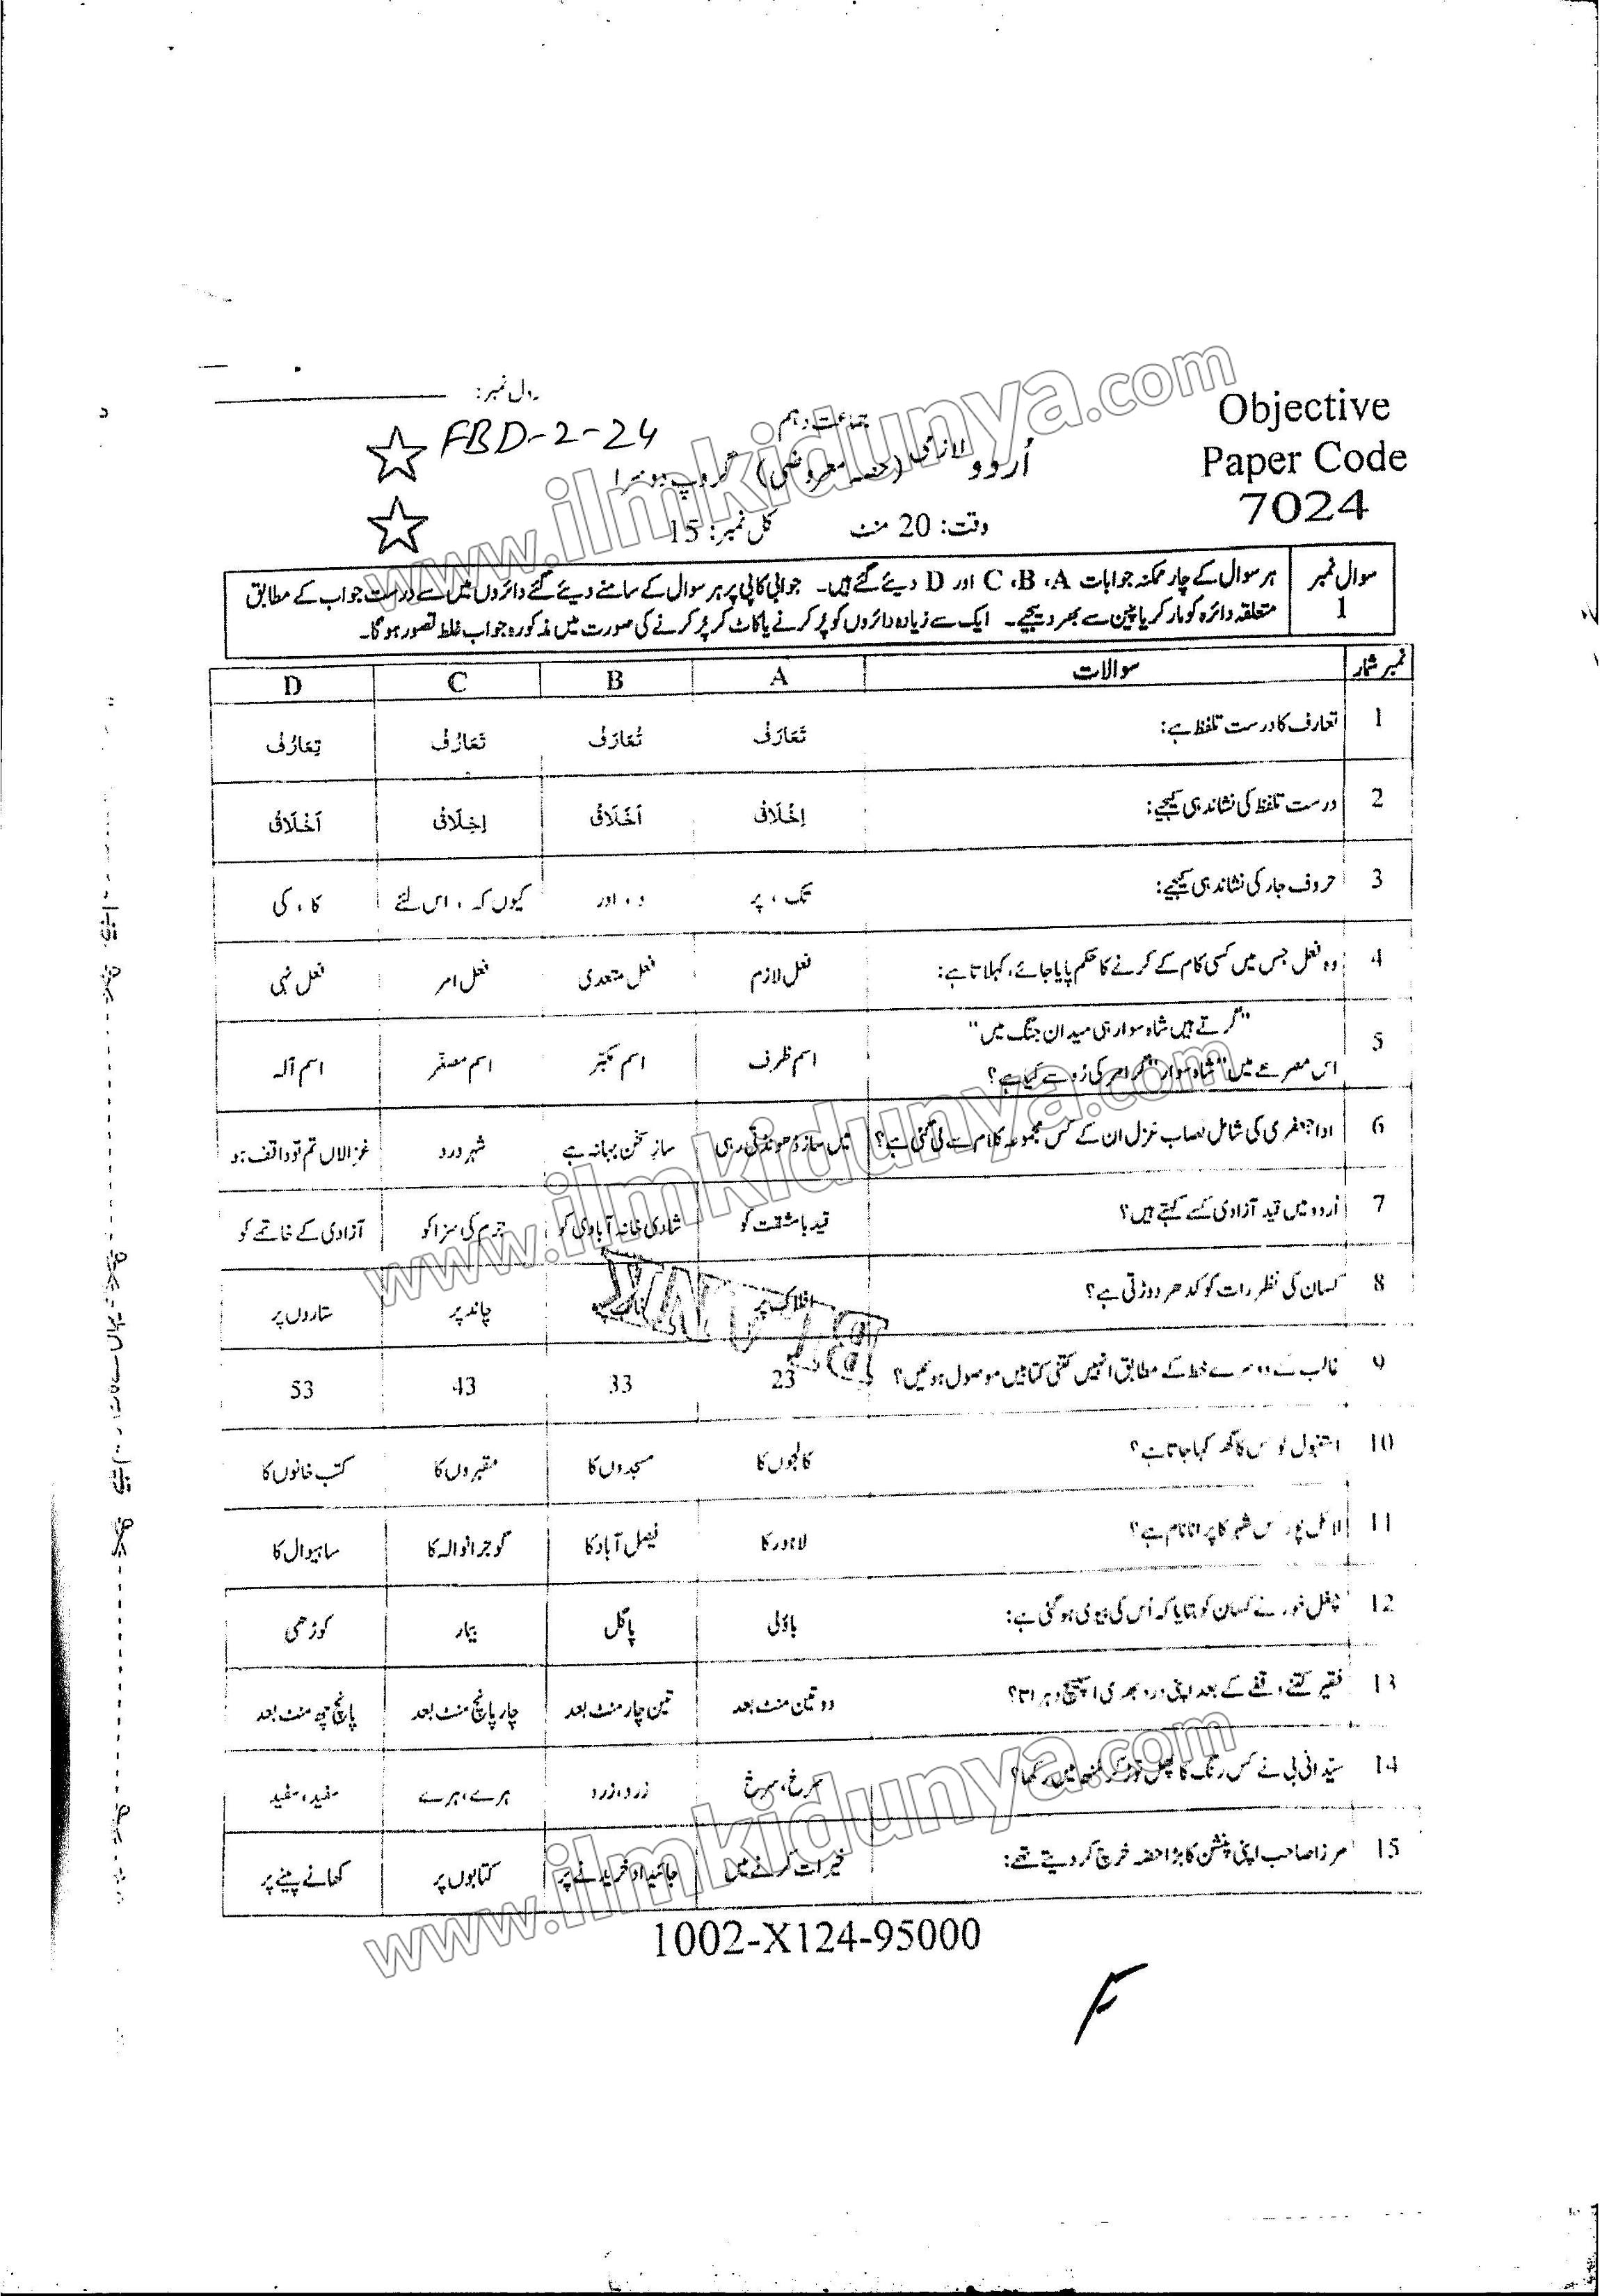 رول نمبر:
FBD-2-24
جماعت دہم
Objective
Paper Code
7024
اُردو لازمی (حصہ معروضی) گروپ دوسرا
وقت: 20 منٹ کل نمبر: 15
سوال نمبر 1
ہر سوال کے چار ممکنہ جوابات A، B، C اور D دیئے گئے ہیں۔ جوابی کاپی پر ہر سوال کے سامنے دیئے گئے دائروں میں سے درست جواب کے مطابق
متعلقہ دائرہ کو مارکر یا پین سے بھر دیجیے۔ ایک سے زیادہ دائروں کو پُر کرنے یا کاٹ کر پُر کرنے کی صورت میں مذکورہ جواب غلط تصور ہوگا۔
نمبر شمار سوالات A B C D
1 تعارف کا درست تلفظ ہے: تَعَارَف تُعَارَف تَعَارُف تِعَارُف
2 درست تلفظ کی نشاندہی کیجیے: اِخْلَاق اَخَلَاق اِخِلَاق اَخْلَاق
3 حروف جار کی نشاندہی کیجیے: تک، پر و، اور کیوں کہ، اس لئے کا، کی
4 وہ فعل جس میں کسی کام کے کرنے کا حکم پایا جائے، کہلاتا ہے: فعل لازم فعل متعدی فعل امر فعل نہی
5 "گرتے ہیں شاہ سوار ہی میدان جنگ میں"
اس مصرعے میں "شاہ سوار" گرامر کی رُو سے کیا ہے؟ اسم ظرف اسم مکبّر اسم مصغّر اسم آلہ
6 ادا جعفری کی شامل نصاب غزل ان کے کس مجموعہ کلام سے لی گئی ہے؟ میں ساز ڈھونڈتی رہی سازِ سخن بہانہ ہے شہر درد غزالاں تم تو واقف ہو
7 اُردو میں قید آزادی کسے کہتے ہیں؟ قید بامشقت کو شادی خانہ آبادی کو جرم کی سزا کو آزادی کے خاتمے کو
8 کسان کی نظر رات کو کدھر دوڑتی ہے؟ افلاک پر چاند پر ستاروں پر
9 غالب کے دوسرے خط کے مطابق انہیں کتنی کتابیں موصول ہوئیں؟ 23 33 43 53
10 استنبول کو کس کا گھر کہا جاتا ہے؟ کالجوں کا مسجدوں کا مقبروں کا کتب خانوں کا
11 لائل پور کس شہر کا پرانا نام ہے؟ لاہور کا فیصل آباد کا گوجرانوالہ کا ساہیوال کا
12 چغل خور نے کسان کو بتایا کہ اُس کی بیوی ہو گئی ہے: باؤلی پاگل بیمار کوڑھی
13 فقیر کتنے وقفے کے بعد اپنی درد بھری اسپیچ دہراتا؟ دو تین منٹ بعد تین چار منٹ بعد چار پانچ منٹ بعد پانچ چھ منٹ بعد
14 سیّدانی بی نے کس رنگ کا پھل توڑ کر منہ میں رکھا؟ سرخ، سرخ زرد، زرد ہرے، ہرے سفید، سفید
15 مرزا صاحب اپنی پنشن کا بڑا حصہ خرچ کر دیتے تھے: خیرات کرنے میں جائیداد خریدنے پر کتابوں پر کھانے پینے پر
1002-X124-95000
F
www.ilmkidunya.com
www.ilmkidunya.com
www.ilmkidunya.com